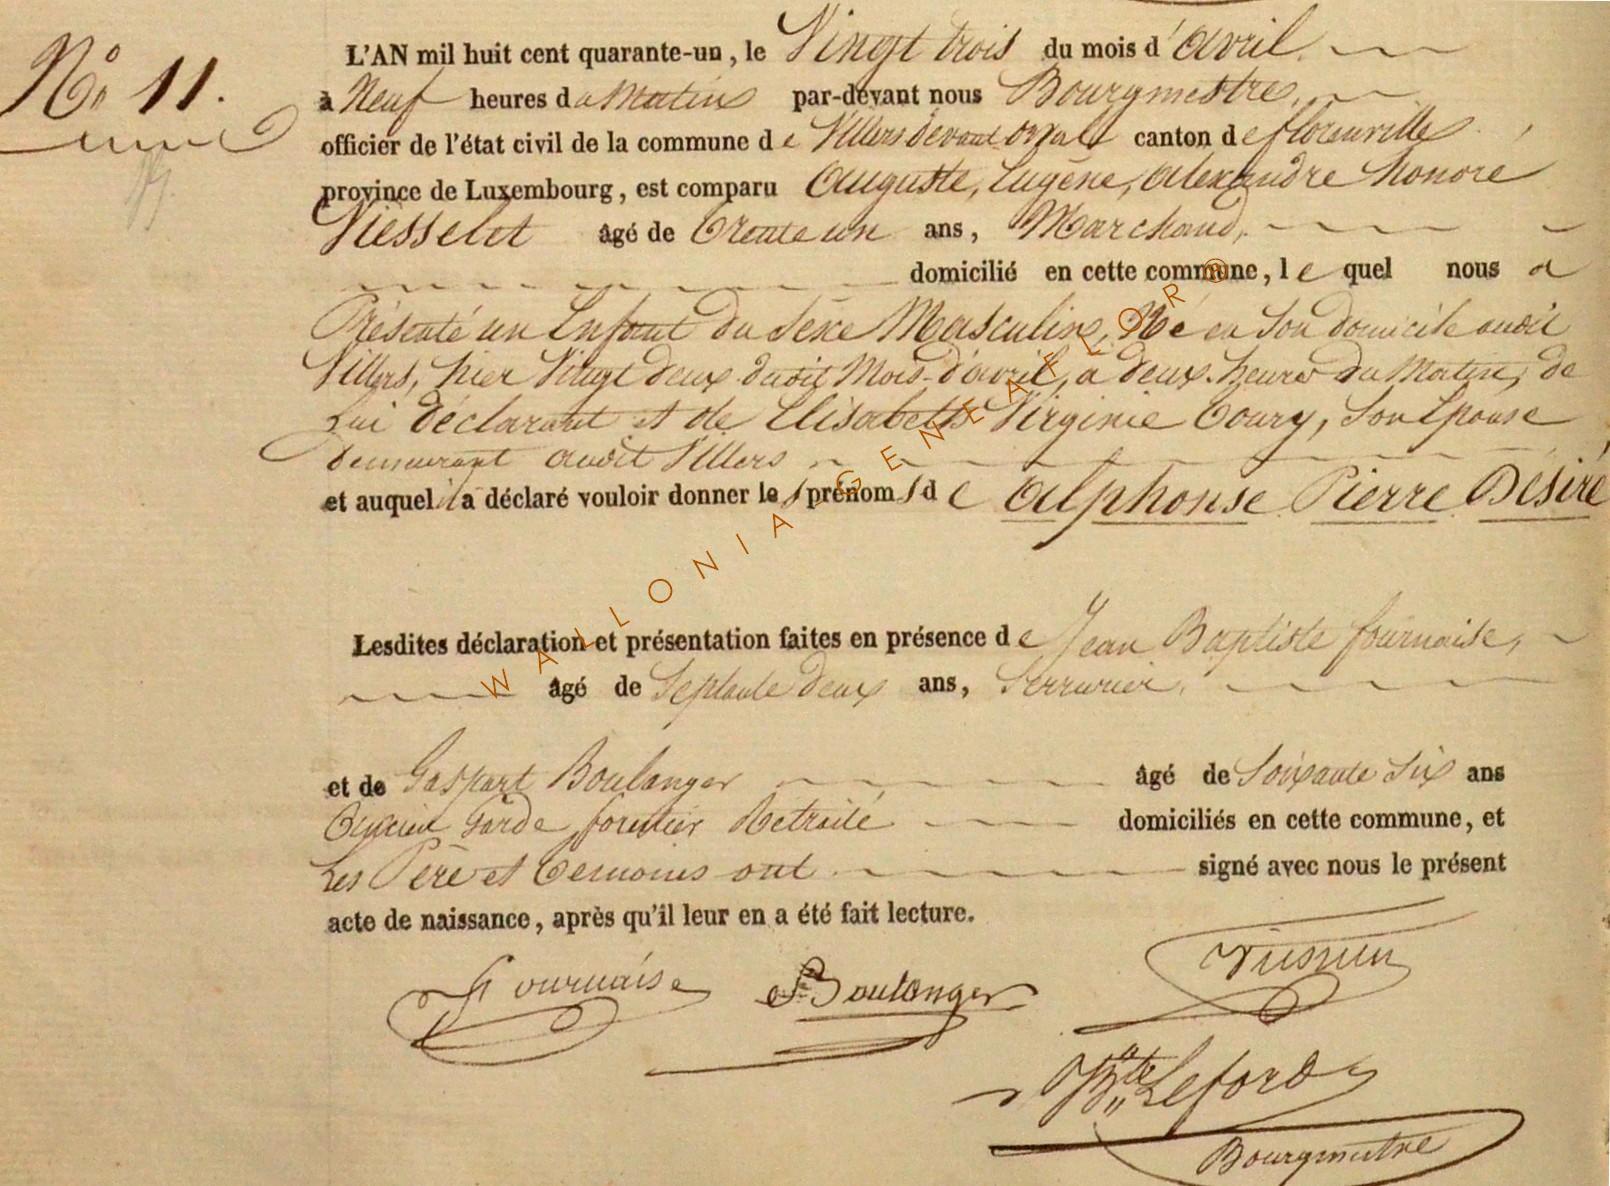 L'AN mil huit cent quarante-un, le Vingt trois du mois d'avril.
N° 11.
à Neuf heures du Matin par-devant nous Bourgmestre,
officier de l'état civil de la commune de Villers devant orval canton de florenville
province de Luxembourg, est comparu Auguste, Eugène, Alexandre honoré
âgé de trente un ans, Marchand,
domicilié en cette commune, le quel nous a
Présenté un Enfant du Sexe Masculin, Né en Son domicile audit
Villers, hier Vingt deux dudit Mois d'avril, a deux heures du Matin, de
Lui déclarant et de Elisabeth Virginie Toury, Son Epouse
demeurant audit Villers
et auquel il a déclaré vouloir donner les prénoms de Alphonse Pierre Désiré
Lesdites déclaration et présentation faites en présence de Jean Baptiste fournaise,
âgé de Septante deux ans, Serrurier,
et de Gaspart Boulanger âgé de Soixante Six ans
Ancien Garde forestier Retraité domiciliés en cette commune, et
Les Père et Temoins ont signé avec nous le présent
acte de naissance, après qu'il leur en a été fait lecture.
Fournaise Boulanger
Bte Leford
Bourgmestre
WALLONIA GENEAFLOR®